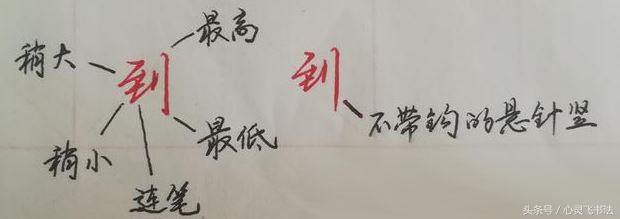 最高
稍大
到
到
不带钩的悬针竖
最低
稍小
连笔
头条号／心灵飞书法